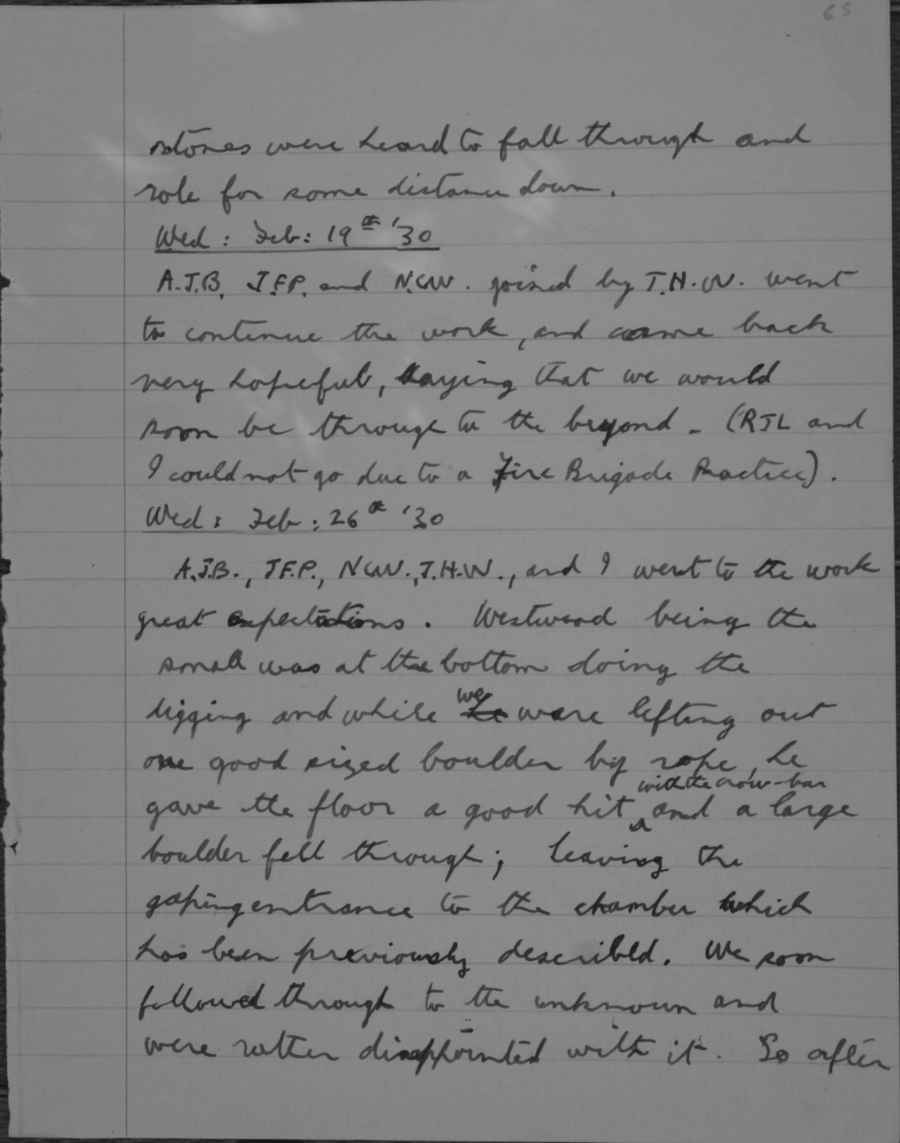 65
stones were heard to fall through and
role for some distance down.
Wed: Feb: 19th '30
A.J.B. J.F.P. and N.C.W. joined by T.H.W. went
to continue the work, and came back
very hopeful, saying that we would
soon be through to the beyond - (RJL and
I could not go due to a Fire Brigade Practice).
Wed: Feb: 26th '30
A.J.B., J.F.P., N.C.W., T.H.W., and I went to the work
great expectations. Westwood being the
small was at the bottom doing the
digging and while we were lifting out
one good sized boulder by rope, he
gave the floor a good hit with the crow-bar and a large
boulder fell through; leaving the
gaping entrance to the chamber which
has been previously described. We soon
followed through to the unknown and
were rather disappointed with it. So after